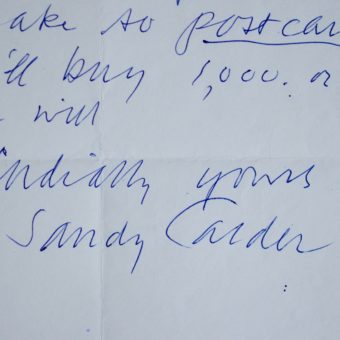 ake so postcar
'll buy 1,000. or
will
rdially yours
Sandy Calder